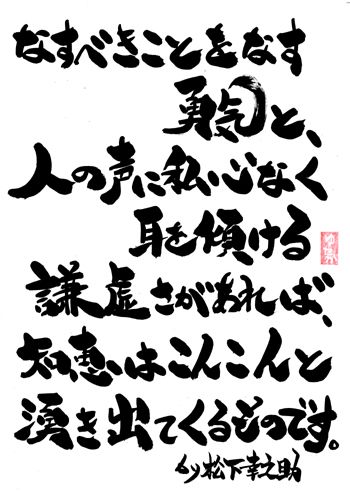 なすべきことをなす
勇気と、
人の声に私心なく
耳を傾ける
謙虚さがあれば、
知恵はこんこんと
湧き出てくるものです。
by 松下幸之助